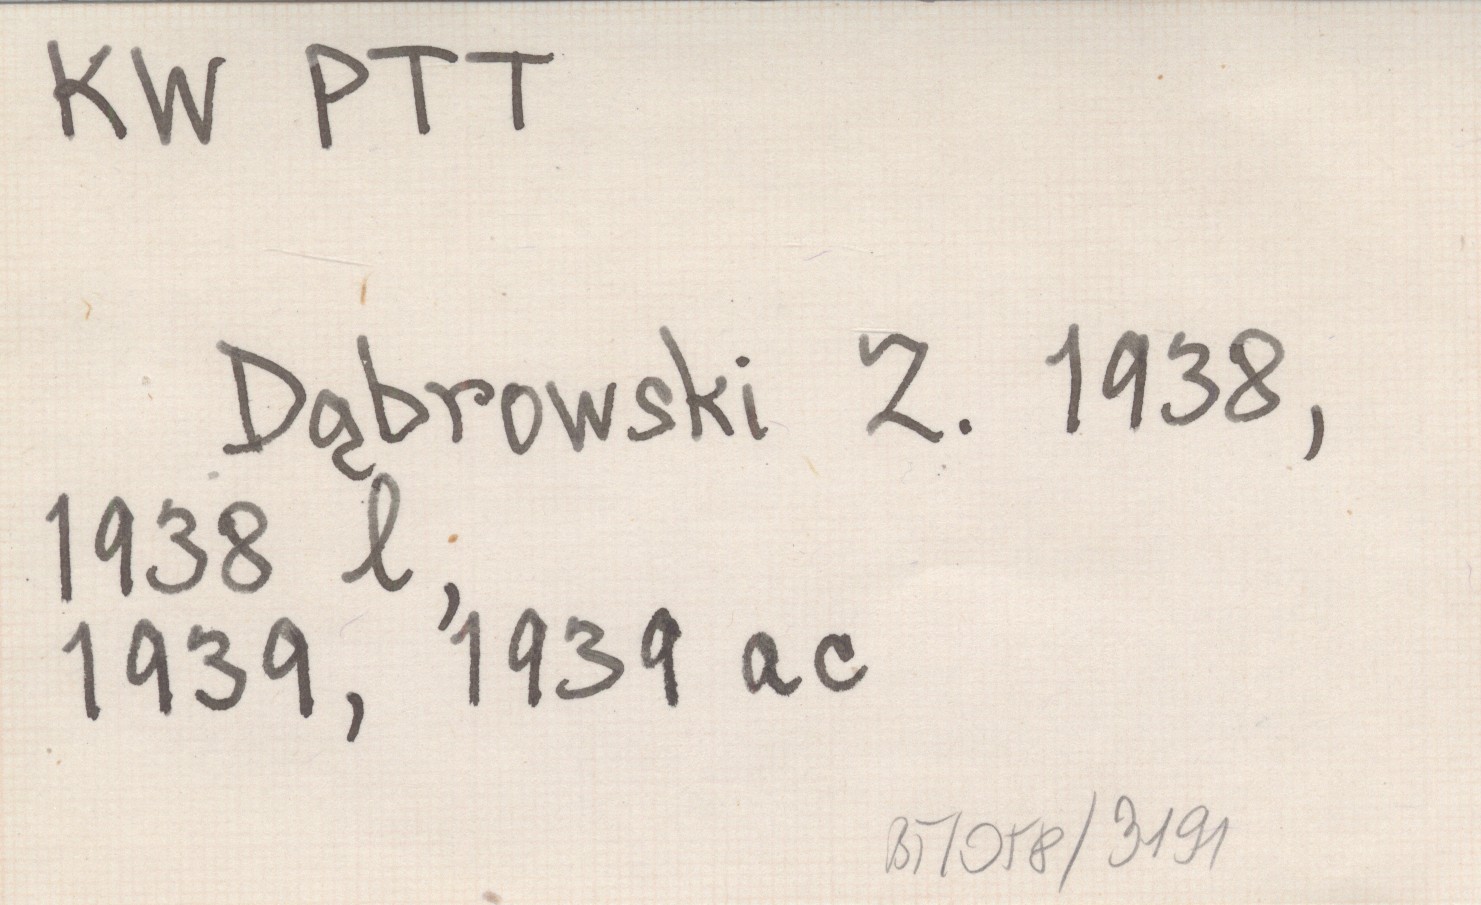 KW PTT
Dąbrowski Z. 1938,
1938 l,
1939, 1939 ac
BT/058/3191